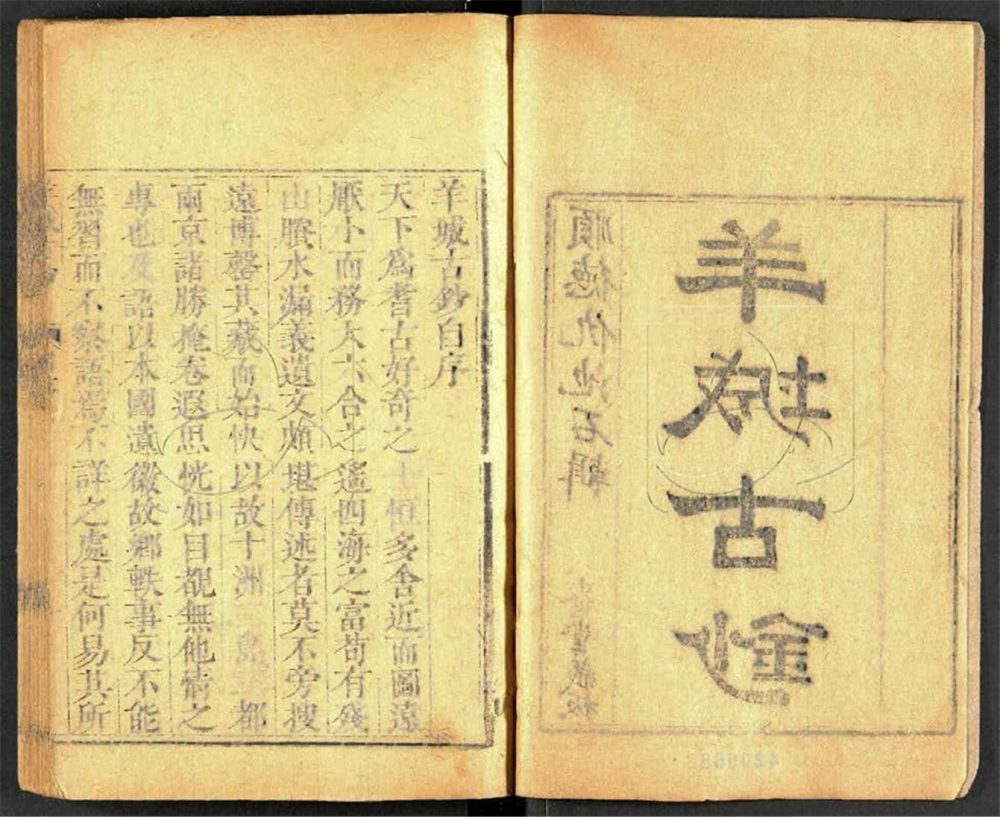 羊城古鈔
順德仇池石輯
堂藏板
羊城古鈔自序
天下爲耆古好奇之士恒多舍近而圖遠
厭小而務大六合之遙四海之富苟有殘
山賸水漏義遺文頗堪傳述者莫不旁搜
遠博罄其藏而始快以故十洲三島三都
兩京諸勝掩卷遐思恍如目覩無他情之
專也及語以本國遺徽故鄉軼事反不能
無習而不察語焉不詳之處是何易其所